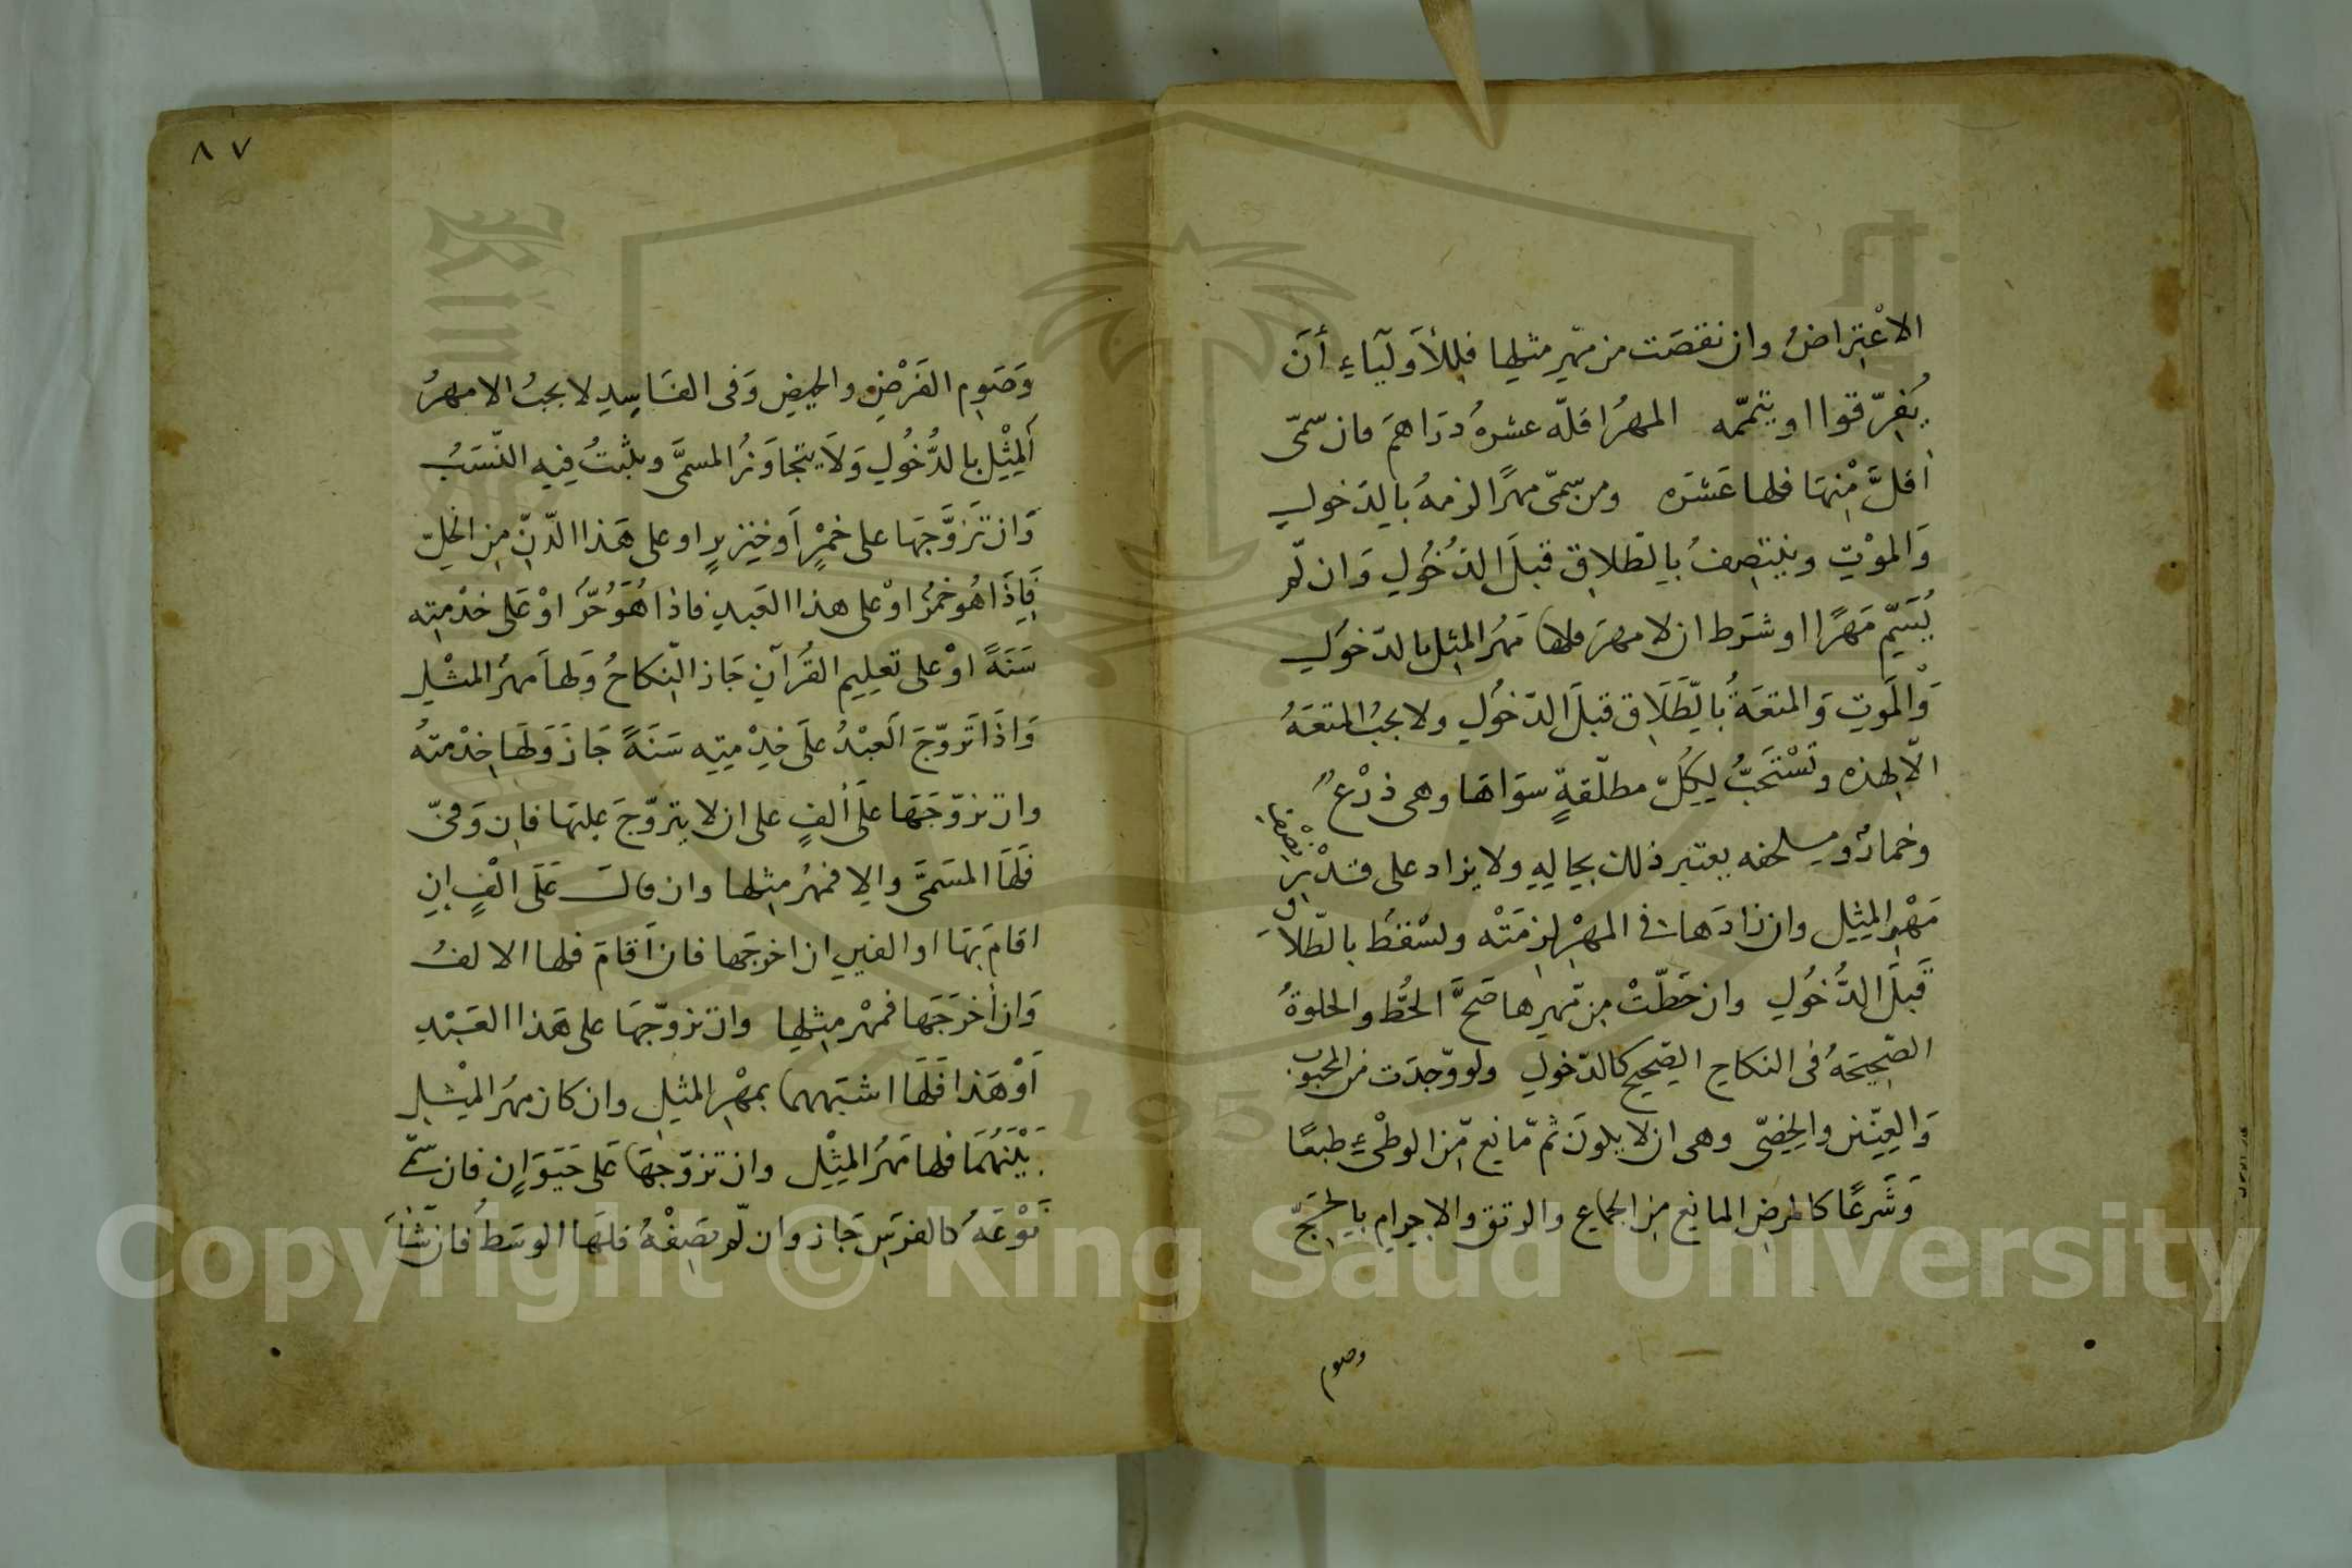 الاعْتِراضُ وان نقصَت من مَهرِ مثلِها فلِلأَولَيآءِ أنَ
يُفِرّقوا او يتممّه المهرُ اقلّه عشرةُ دَرَاهمَ فان سّمّى
اقلَّ مْنِهَا فلها عَشَره ومن سمّى مهرًا لزمهُ بالِدَخولِ
وَالموْتِ وينتصِفُ بالِطّلاقِ قبلَ الدُخُولِ وَان لّم
يُسَمّ مَهرًا او شرَط ان لا مهرَ فلها مَهُر المِثِل بالدّخوُلِ
وَْالمَوتِ وَالمتعَةُ بالِطّلَاقِ قبلَ الدّخوُلِ ولا يجبُ المتعَهُ
الّا لهذه وتسْتَحَبُّ لِكِلّ مطلّقةٍ سوَاهَا وهى دْرعٌ
وخمارٌ وملحفه يعتبر ذلك بحِالِهِ ولا يزاد على قدْر نِصْفِ
مَهْرِ المِثِل وان زادَها فى المهْرِ لزمَتْه وتسْقُط بالطّلاقِ
قَبلَ الدُّخُولِ وان حَطّتْ مِن مّهرِها صَحَّ الحُطّ والخلوةُ
الصّحِيحَهُ فى النكاحِ الصّحِيح كالدّخولِ ولو وّجدَت من المجبُوبِ
وَالعِنّين والخِصّى وهى ان لا يكونَ ثم مّانِع مّن الوطْىءِ طبعًا
وَشَرعًا كالمرضِ المانعِ مِن الجماعِ والرتق والاحرامِ بالِحَجّ
وصوم
٨٧
وَصَومِ الفَرْضِ والحيضِ وَفى الفَاسِدِ لا يجبُ الا مهرُ
اَلمِثْلِ بالدُّخُولِ وَلَا يتجاوَزُ المسمَّى ويثبتُ فِيهِ النّسَبُ
وَان تَزوَّجَها على خمْرٍ اَو خنِزيرٍ او على هَذا الدّنّ مِن الخلِّ
فَاِذَا هُو خمرٌ اوْ على هذا العَبدِ فاذا هُوَ حُرٌّ اوْ عَلى خدْمتِه
سَنَةً اوْ على تعلِيمِ القُرآنِ جَاز النّكاحُ وَلهاَ مهرُ المثْلِ
وَاذَا تَروّجَ اَلعبْدُ علَى خِدْمتِهِ سَنَةً جَازَ وَلَها خِدْمتهُ
وان تزوّجَهَا علَى ألفٍ على ان لا يتزوّجَ عليهَا فاِن وَفىّ
فَلَهَا المسَمَّى والا فمهرُ مِثلِها وان قالَ عَلَى الْفٍ اِنِ
اقامَ بَهَا او الفينِ ان اخرجَها فان اَقامَ فلها الالفُ
وَان أخرَجَها فمهْر مِثلِها وان تزوّجَهَا على هَذا العَبْدِ
اَوْ هَذا فَلَها اشبَههما بمهْرِ المثِلِ وان كان مهرُ المِثْلِ
بَيْنَهُمَا فلها مَهرُ المِثِْل وان تزوّجهَا عَلى حَيَوَانٍ فان سَمّى
نَوْعَهُ كالفرَسِ جَاز وان لّم يصَِفْهُ فلَها الوسَطُ فان شَاَْ